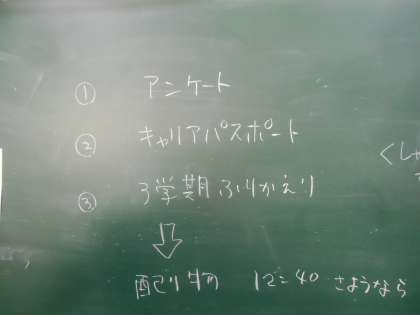 ① アンケート
② キャリアパスポート
③ 3学期ふりかえり
⇩
配り物 12:40 さようなら